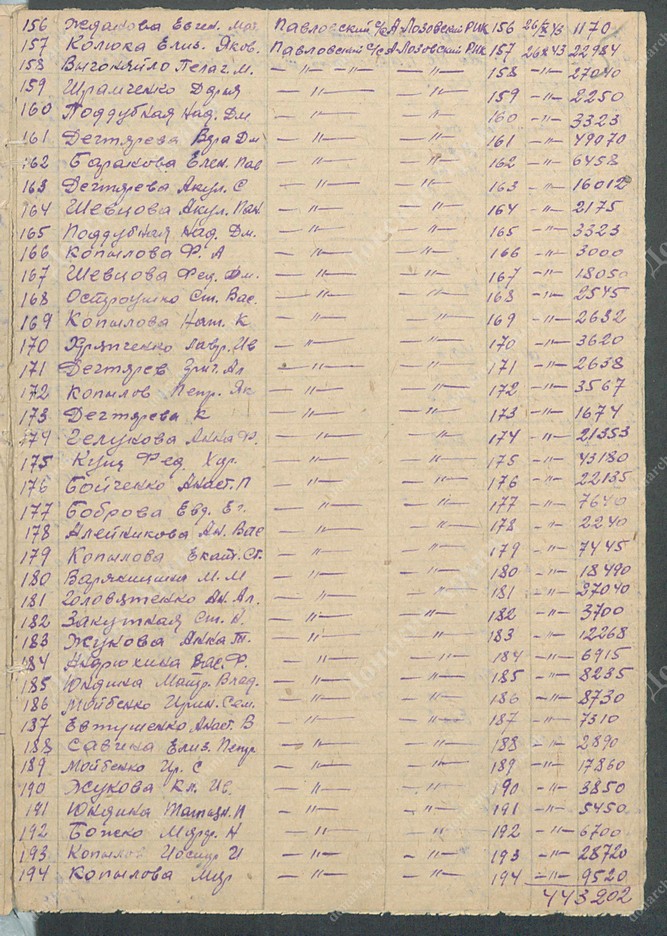 156 Жданова Евген. Мат. Павловский с/с А Лозовский РИК 156 26/X 43 1170
157 Колюка Елиз. Яков. Павловский с/с А Лозовский РИК 157 26 X 43 22984
158 Выгоняйло Пелаг. М. —〃— —〃— —〃— 158 —〃— 27040
159 Шрамченко Дария —〃— —〃— 159 —〃— 2250
160 Поддубная Над. Дм —〃— —〃— 160 —〃— 3323
161 Дегтярева Вера Дм —〃— —〃— 161 —〃— 49070
162 Баракова Елен. Пав —〃— —〃— 162 —〃— 6458
163 Дегтярева Акул. С —〃— —〃— 163 —〃— 16012
164 Шевцова Акул. Пан. —〃— —〃— 164 —〃— 2175
165 Поддубная Над. Дм. —〃— —〃— 165 —〃— 3323
166 Копылова Ф. А —〃— —〃— 166 —〃— 3000
167 Шевцова Фед. Дм. —〃— —〃— 167 —〃— 18050
168 Остроушко Ст. Вас. —〃— —〃— 168 —〃— 2545
169 Копылова Нат. К —〃— —〃— 169 —〃— 2632
170 Хряпченко Лавр. Ив —〃— —〃— 170 —〃— 3620
171 Дегтярев Григ. Ал —〃— —〃— 171 —〃— 2638
172 Копылов Петр. Як —〃— —〃— 172 —〃— 3567
173 Дегтярева К —〃— —〃— 173 —〃— 1674
174 Челукова Анна Ф. —〃— —〃— 174 —〃— 21353
175 Куц Фед. Хар. —〃— —〃— 175 —〃— 43180
176 Бойченко Анаст. П —〃— —〃— 176 —〃— 22135
177 Боброва Евд. Ег. —〃— —〃— 177 —〃— 7640
178 Алейникова Ан. Вас —〃— —〃— 178 —〃— 2240
179 Копылова Екат. Ст. —〃— —〃— 179 —〃— 7445
180 М. М —〃— —〃— 180 —〃— 18490
181 Головятенко Ан. Ал. —〃— —〃— 181 —〃— 27040
182 Закутная Ст. —〃— —〃— 182 —〃— 3700
183 Жукова Анна Т. —〃— —〃— 183 —〃— 12268
184 Андрюхина Вас. Ф. —〃— —〃— 184 —〃— 6915
185 Юндина Матр. Влад. —〃— —〃— 185 —〃— 8235
186 Мойбенко Ирин. Сем. —〃— —〃— 186 —〃— 8730
187 Евтушенко Анаст. В —〃— —〃— 187 —〃— 7310
188 Савчина Елиз. Петр —〃— —〃— 188 —〃— 2890
189 Мойбенко Ир. С —〃— —〃— 189 —〃— 17860
190 Жукова Кл. Ив. —〃— —〃— 190 —〃— 3850
191 Юндина Татьян. П —〃— —〃— 191 —〃— 5450
192 Божко Марф. Н —〃— —〃— 192 —〃— 6700
193 Копылов Иосиф И —〃— —〃— 193 —〃— 28720
194 Копылова Мар —〃— —〃— 194 —〃— 9520
443202